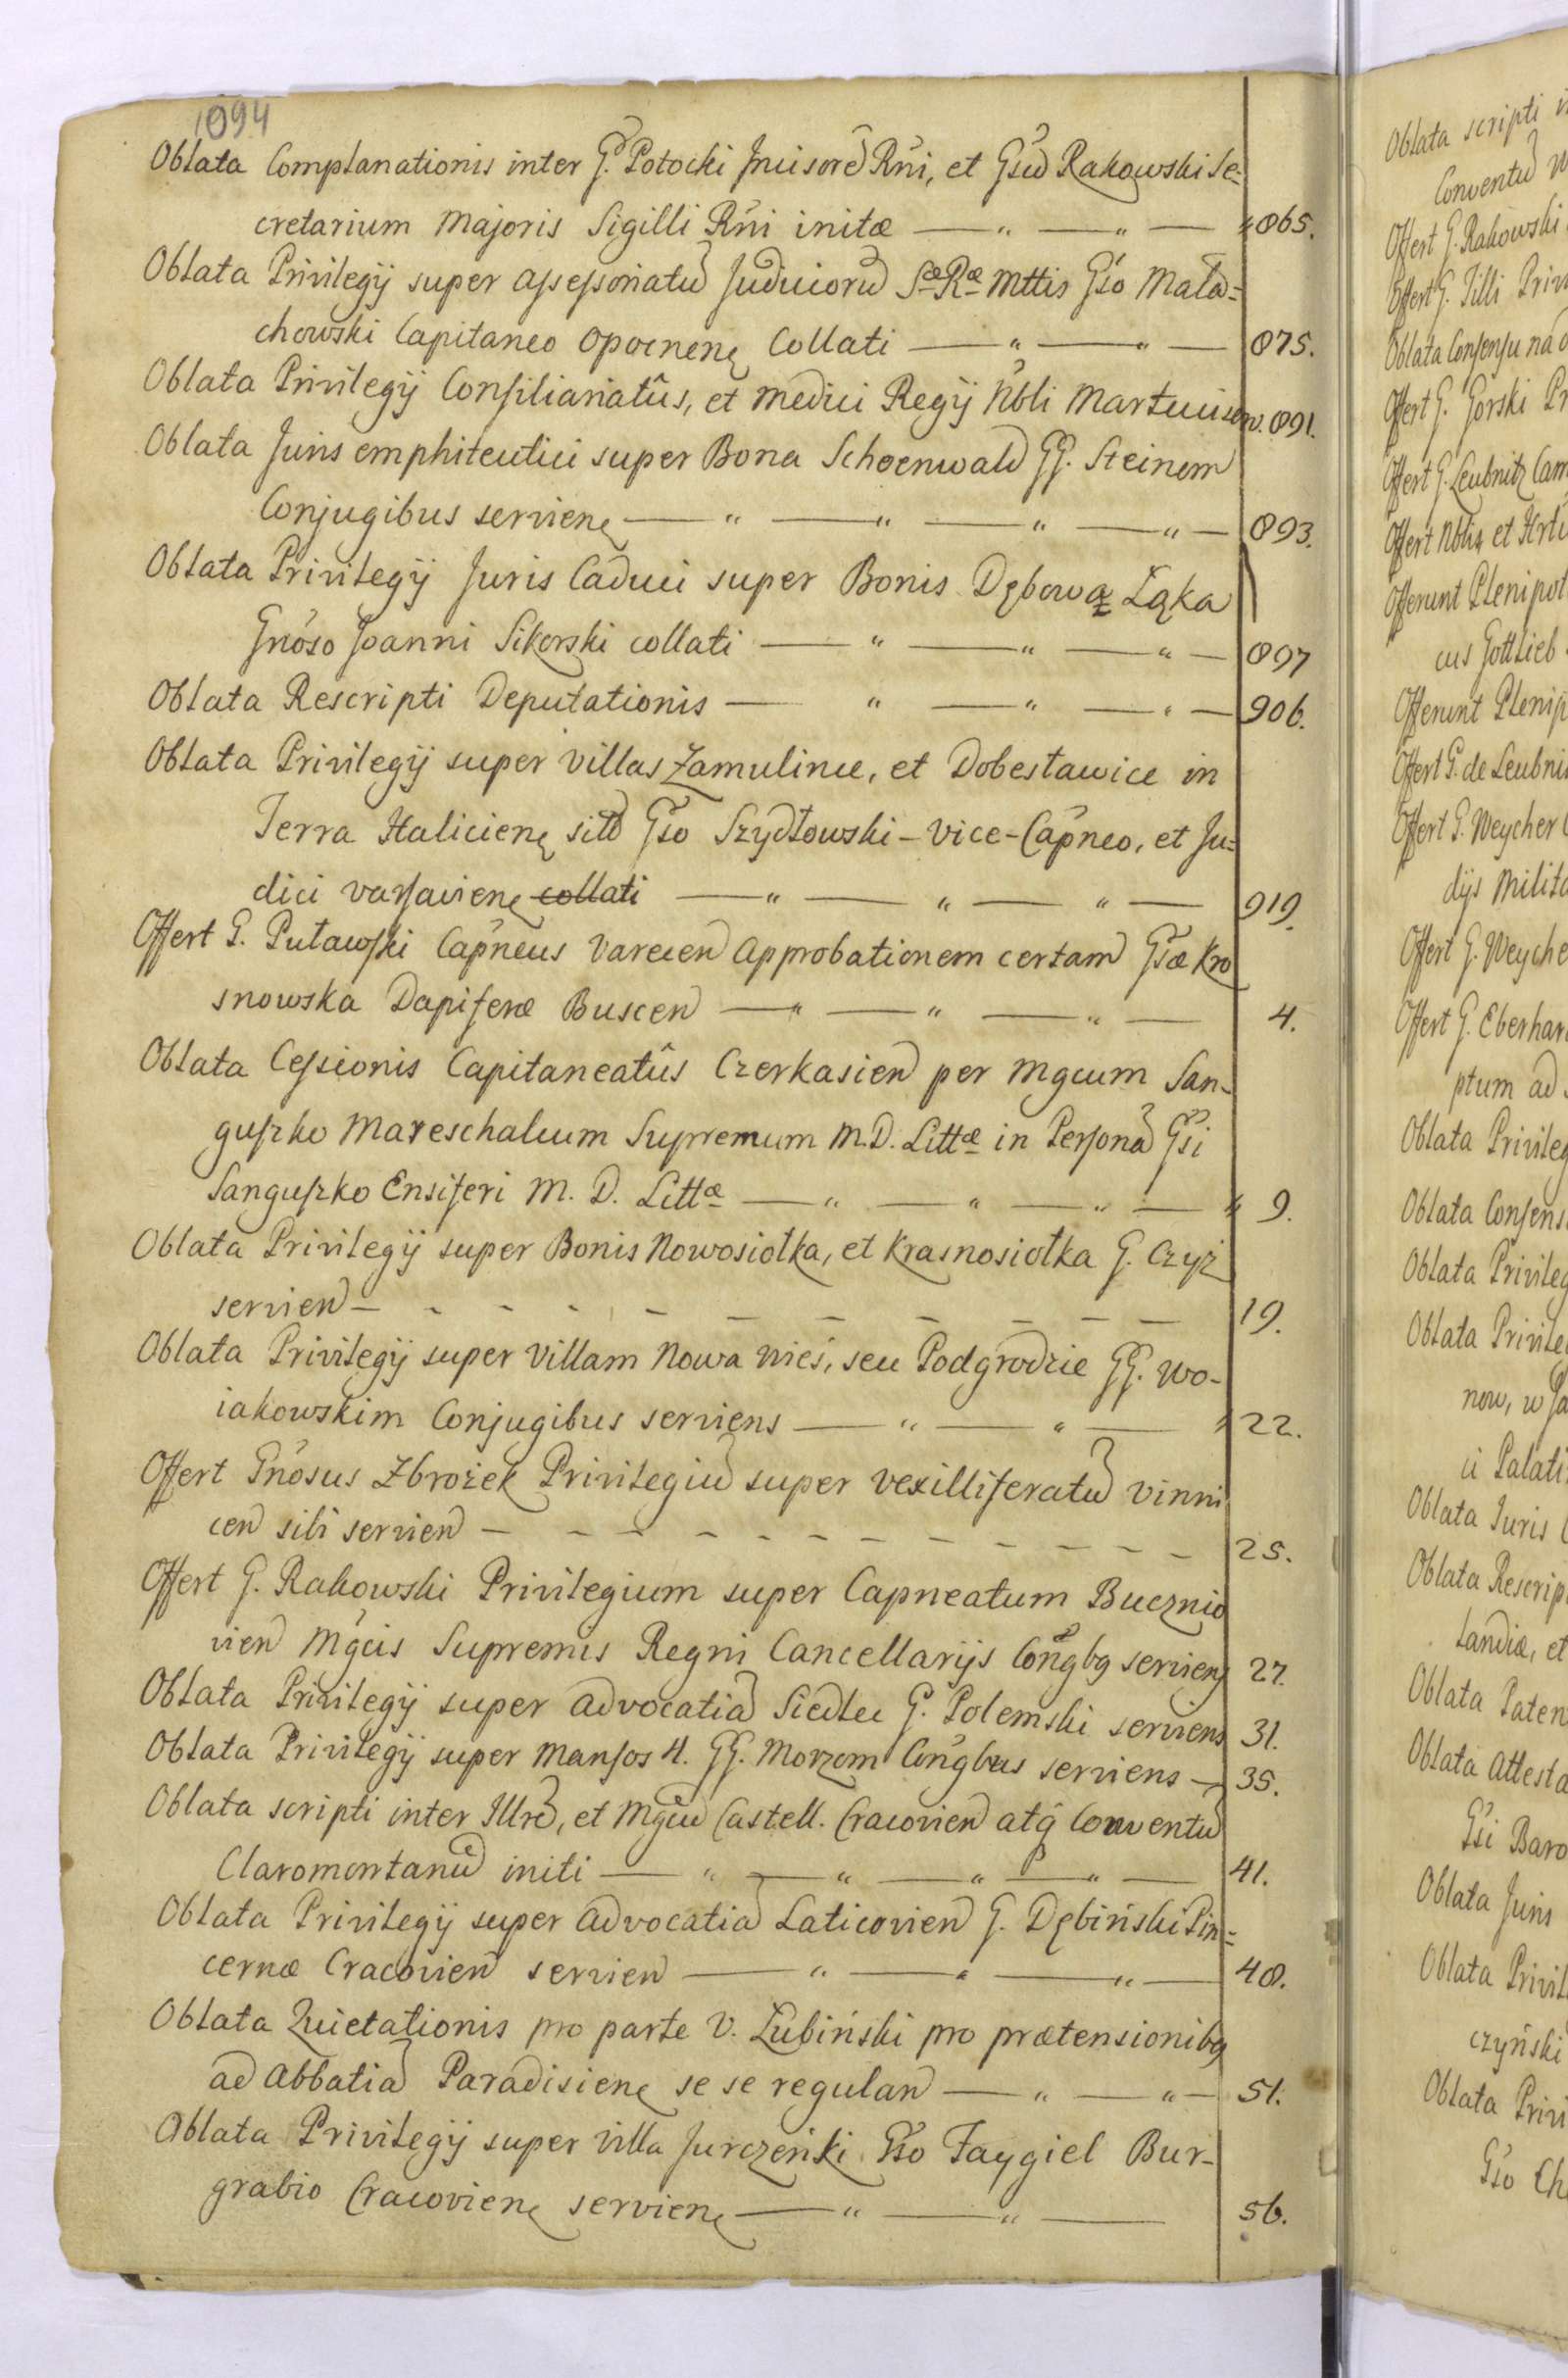 1094
Oblata Complanationis inter G. Potocki Incisore Rni, et Gsu Rakowski Se-
cretarium Majoris Sigilli Rni initæ — „ — „ — 865.
Oblata Privilegij super assessoriatu Judicioru Sæ Ræ Mttis Gso Mała=
chowski Capitaneo Opocnen Collati — „ — „ — 875.
Oblata Privilegij Consiliariatûs, et Medici Regij Nbli Martuii serv. 891.
Oblata Juris emphiteutici super Bona Schoenwald GG. Steinem
Conjugibus servien — „ — „ — „ — „ — 893.
Oblata Privilegij Juris Caduci super Bonis Dębową Łąka
Gnoso Joanni Sikorski collati — „ — „ — „ — 897
Oblata Rescripti Deputationis — „ — „ — „ — 906.
Oblata Privilegij super villas Zamulince, et Dobesławice in
Terra Halicien sitô Gso Szydłowski - Vice-Capneo, et Ju=
dici varsavien collati — „ — „ — „ — 919.
Offert G. Puławski Capneus Varecen Approbationem certam Gsæ Kro
snowska Dapiferæ Buscen — „ — „ — „ — 4.
Oblata Cessionis Capitaneatûs Czerkasien per Mgcum San-
guszko Mareschalcum Supremum M.D. Littæ in Persona Gsi
Sanguszko Ensiferi M. D. Littæ — „ — „ — „ — 9.
Oblata Privilegij super Bonis Nowosiołka, et Krasnosiołka G. Czyż
servien — - - - - - - - - - 19.
Oblata Privilegij super Villam Nowa wieś, seu Podgrodzie GG. Wo-
iakowskim Conjugibus serviens — „ — „ — 22.
Offert Gnosus Zbrożek Privilegiu super vexilliferatu vinni
cen sibi servien - - - - - - - - - - 25.
Offert G. Rakowski Privilegium super Capneatum Bucznio
vien Mgcis Supremis Regni Cancellarijs Congbg serviens 27.
Oblata Privilegij super advocatia Siedlec G. Polemski serviens 31.
Oblata Privilegij super Mansos 4. GG. Morzom Congbus serviens — 35.
Oblata scripti inter Illre, et Mgcu Castell. Cracovien atq Conventu
Claromontanu initi — „ — „ — „ — „ — 41.
Oblata Privilegij super advocatia Laticovien G. Dębiński Pin=
cernæ Cracovien servien — „ — „ — „ — 48.
Oblata Quietationis pro parte V. Łubiński pro prætensionibg
ad Abbatia Paradisien se se regulan — „ — „ — 51.
Oblata Privilegij super Villa Jurczenki Gso Faygiel Bur-
grabio Cracovien servien — „ — „ — 56.
Oblata scripti
Conventu
Offert G. Rakowski
Offert G. Tilli Priv
Oblata Consensu na
Offert G. Gorski Pr
Offert G. Leubnitz Cam
Offert Nblis et
Offerunt Plenipot
cus Gottlieb
Offerunt Plenip
Offert G. de Leubni
Offert G. Weycher
dijs Milita
Offert G. Weyche
Offert G. Eberhar
ptum ad
Oblata Privileg
Oblata Consens
Oblata Privileg
Oblata Privile
now, w
ii Palati
Oblata Juris
Oblata Rescrip
landiæ, et
Oblata Paten
Oblata Attesta
Gsi Baro
Oblata Juris
Oblata Privil
czyński
Oblata Privi
Gso Ch